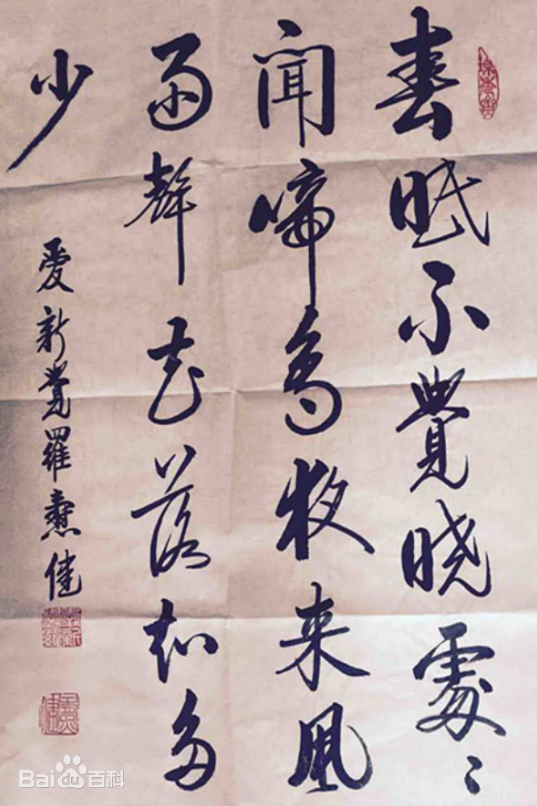 春眠不覺曉處〻
聞啼鸟夜来風
雨聲花落知多
少
愛新覺羅燾健
Baidu百科